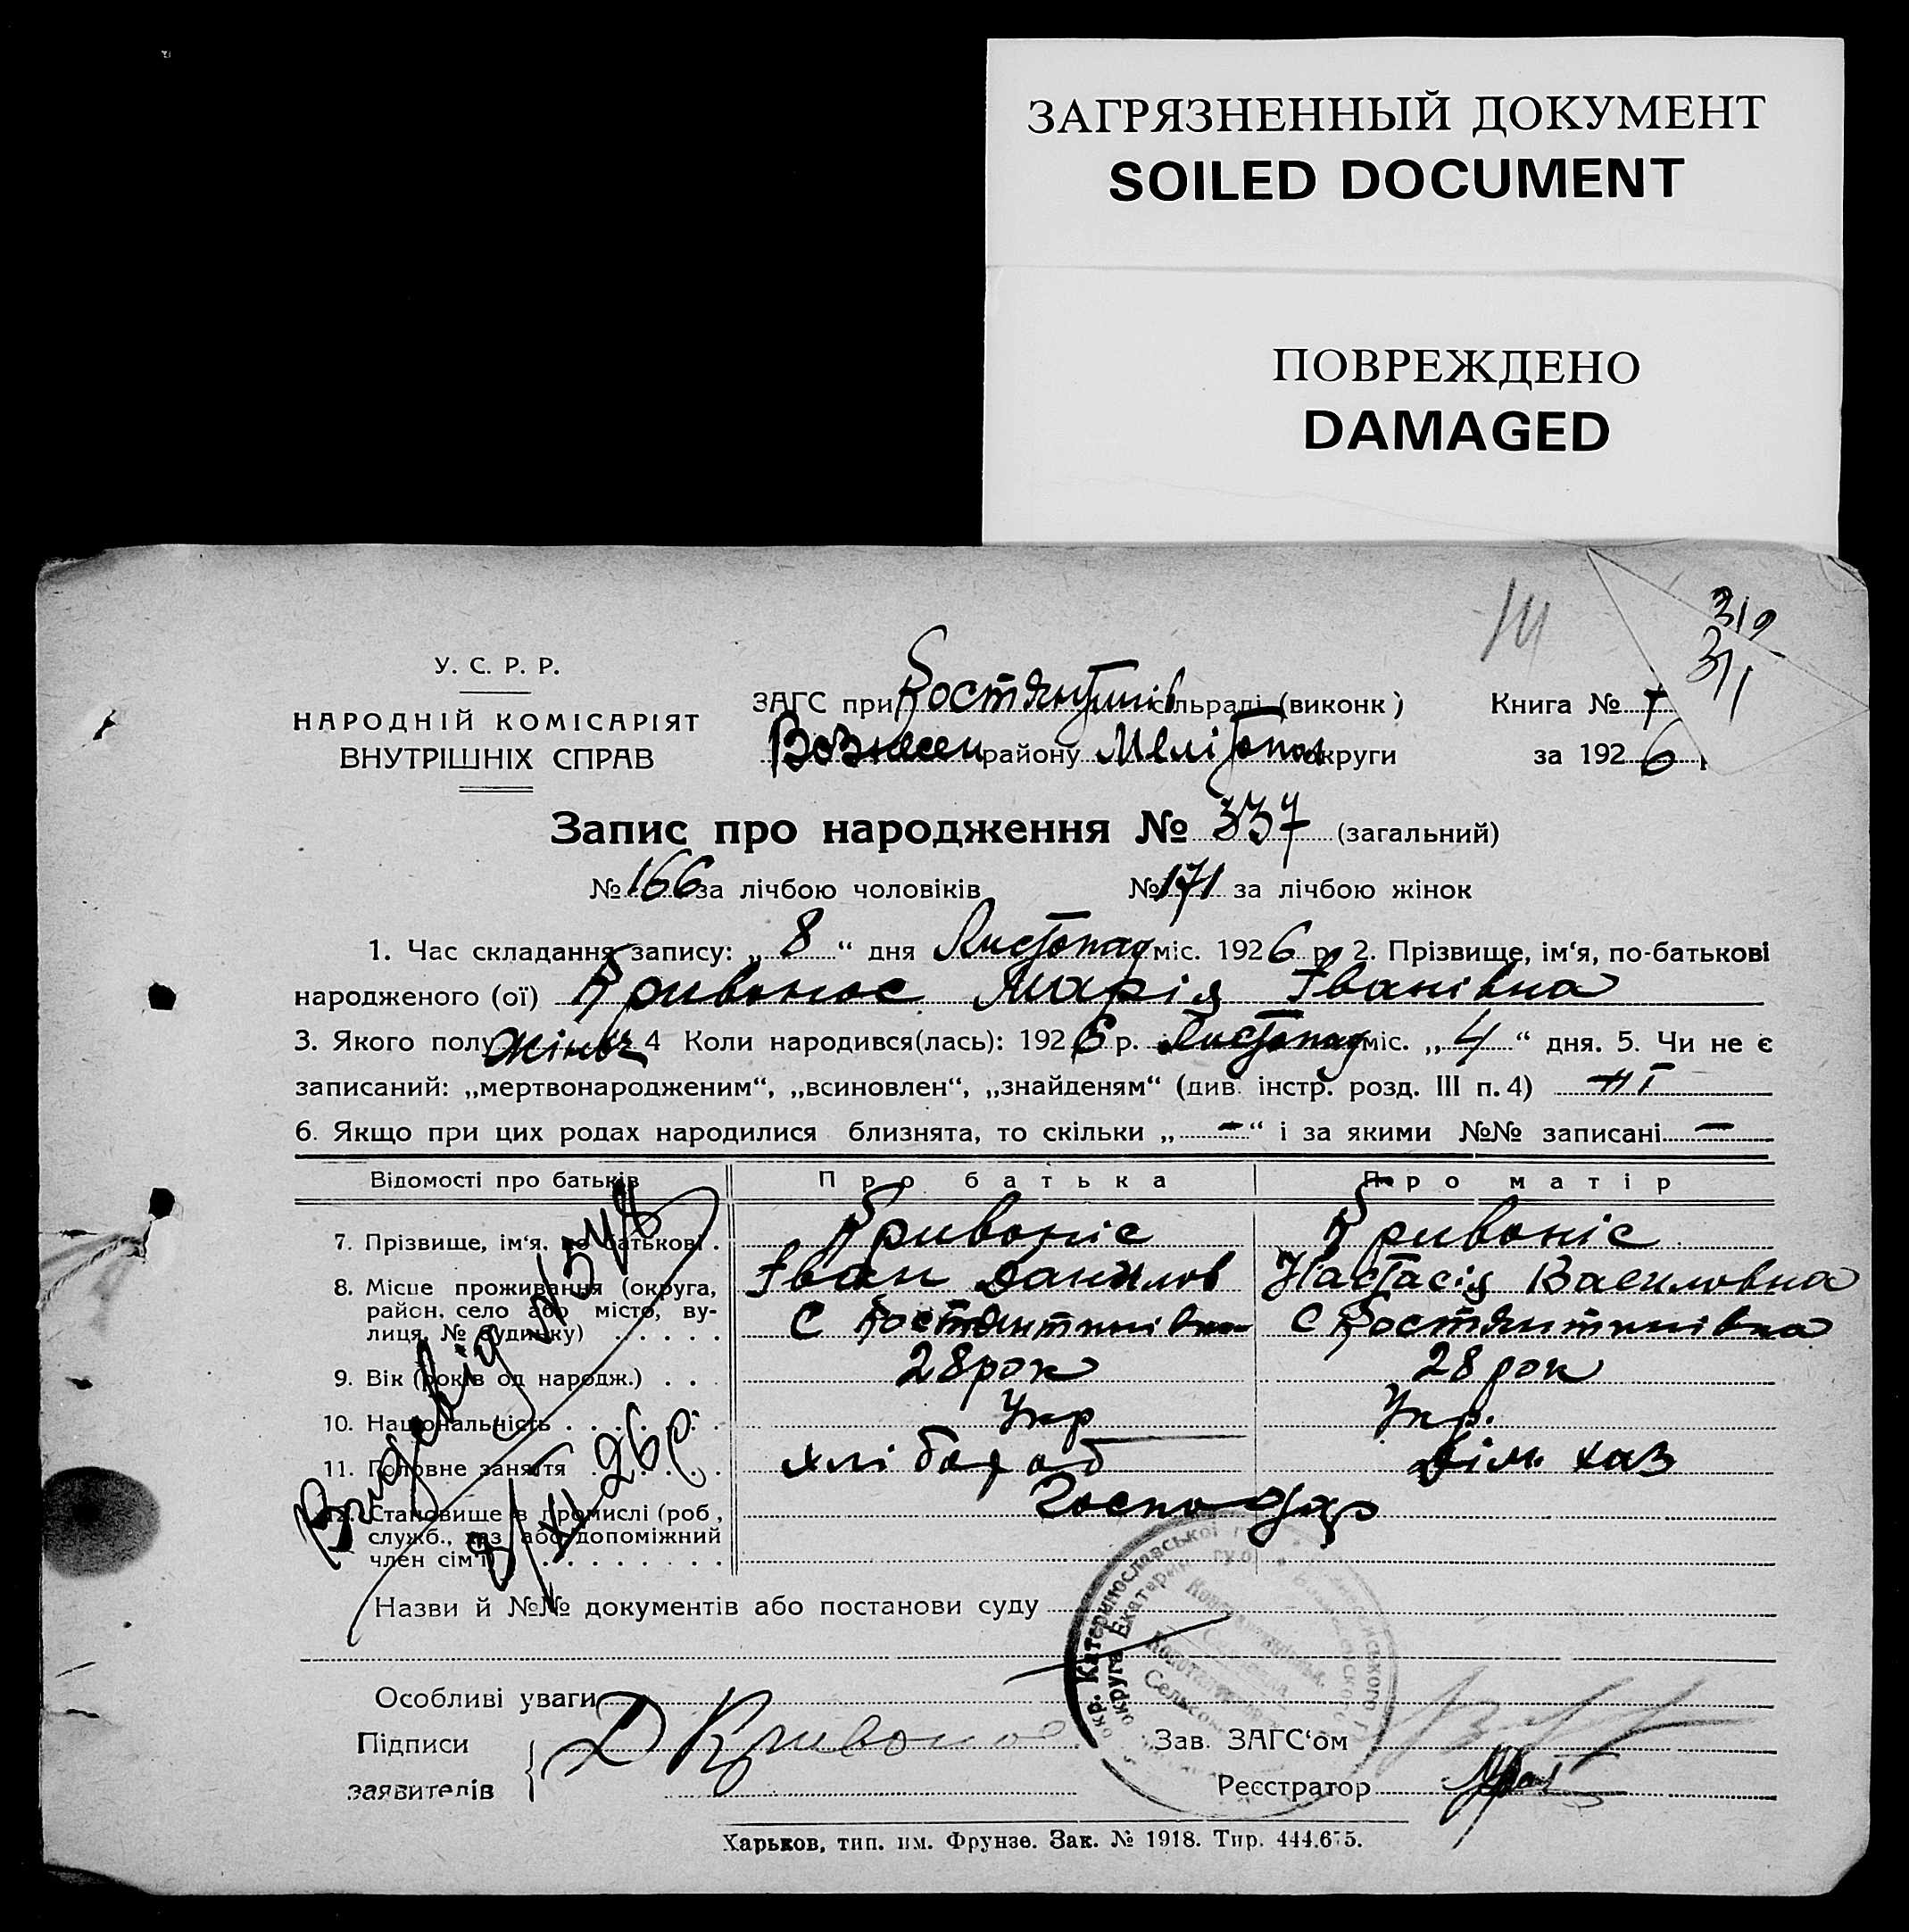 ЗАГРЯЗНЕННЫЙ ДОКУМЕНТ
SOILED DOCUMENT
ПОВРЕЖДЕНО
DAMAGED
14
312
311
У. С. Р. Р.
НАРОДНІЙ КОМІСАРІЯТ
ВНУТРІШНІХ СПРАВ
ЗАГС при Костянтинів сільраді (виконк)
Вознесен району Меліτопол округи
Книга № I
за 1926
Запис про народження № 337 (загальний)
№ 166 за лічбою чоловіків № 171 за лічбою жінок
1. Час складання запису: „ 8 “ дня Листопад міс. 1926 р. 2. Прізвище, ім‘я, по-батькові
народженого (ої) Кривонос Марія Іванівна
3. Якого полу жіноч 4 Коли народився(лась): 1926 р. Листопад міс. „ 4 “ дня. 5. Чи не є
записаний: „мертвонародженим“, „всиновлен“, „знайденям“ (див. інстр. розд. III п. 4) ні
6. Якщо при цих родах народилися близнята, то скільки „ – “ і за якими №№ записані –
Відомості про батьків Про батька Про матір
7. Прізвище, ім‘я, по батькові . Кривоніс Кривоніс
Іван Данилов Настасія Василовна
8. Місце проживання (округа,
район, село або місто, ву-
лиця, № будинку) . . . . . . С Костянтинівка С Костянтинівка
9. Вік (років од народж.) . . . 28 рок 28 рок
10. Національність . . . . . . . Укр Укр.
11. Головне заняття . . . . . . хлібороб Дім. хаз
12. Становище в промислі (роб.,
служб., хаз або допоміжний
член сім‘ї) . . . . . . . . . Господар
Назви й №№ документів або постанови суду
Особливі уваги
Підписи
заявителів
Д Кривонос
Зав. ЗАГС‘ом
Реєстратор
Харьков, тип. им. Фрунзе. Зак. № 1918. Тир. 444.675.